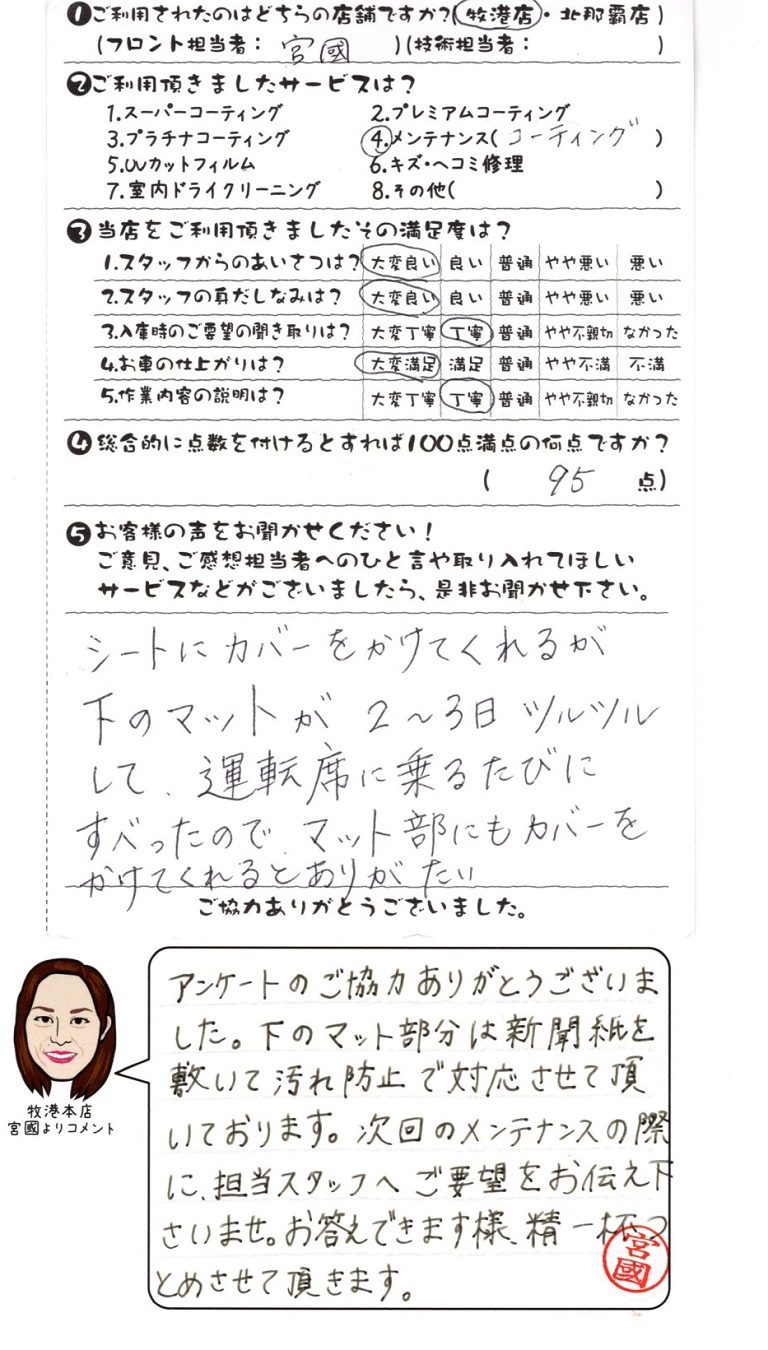 ❶ご利用されたのはどちらの店舗ですか?(牧港店・北那覇店)
(フロント担当者: 宮國 )(技術担当者: )
❷ご利用頂きましたサービスは?
1.スーパーコーティング 2.プレミアムコーティング
3.プラチナコーティング 4.メンテナンス(コーティング)
5.UVカットフィルム 6.キズ・ヘコミ修理
7.室内ドライクリーニング 8.その他( )
❸当店をご利用頂きましたその満足度は?
1.スタッフからのあいさつは? 大変良い 良い 普通 やや悪い 悪い
2.スタッフの身だしなみは? 大変良い 良い 普通 やや悪い 悪い
3.入庫時のご要望の聞き取りは? 大変丁寧 丁寧 普通 やや不親切 なかった
4.お車の仕上がりは? 大変満足 満足 普通 やや不満 不満
5.作業内容の説明は? 大変丁寧 丁寧 普通 やや不親切 なかった
❹総合的に点数を付けるとすれば100点満点の何点ですか?
( 95 点)
❺お客様の声をお聞かせください!
ご意見、ご感想担当者へのひと言や取り入れてほしい
サービスなどがございましたら、是非お聞かせ下さい。
シートにカバーをかけてくれるが
下のマットが 2～3日 ツルツル
して、運転席に乗るたびに
すべったので、マット部にもカバーを
かけてくれるとありがたい
ご協力ありがとうございました。
アンケートのご協力ありがとうございま
した。下のマット部分は新聞紙を
敷いて汚れ防止で対応させて頂
いております。次回のメンテナンスの際
に、担当スタッフへご要望をお伝え下
さいませ。お答えできます様、精一杯つ
とめさせて頂きます。
宮國
牧港本店
宮國よりコメント